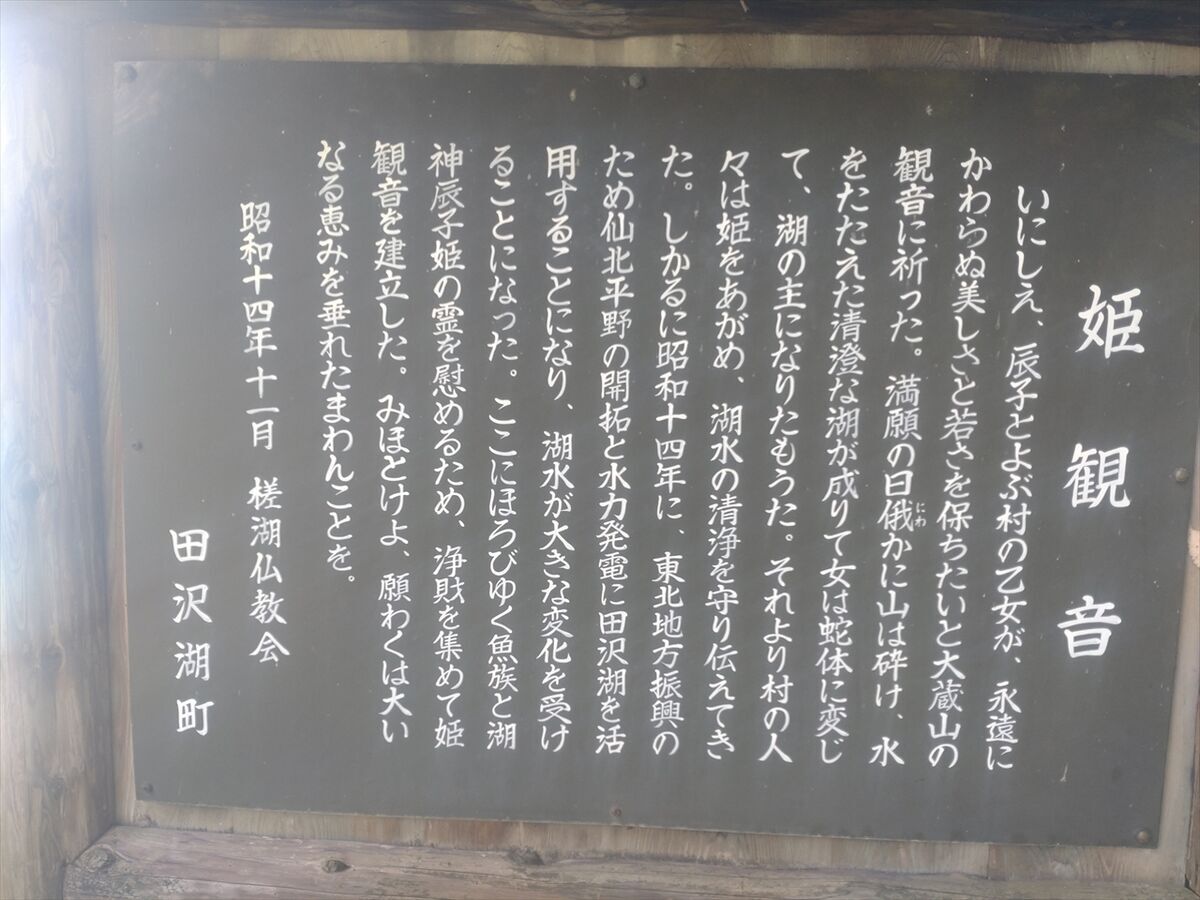 姫観音
いにしえ、辰子とよぶ村の乙女が、永遠に
かわらぬ美しさと若さを保ちたいと大蔵山の
観音に祈った。満願の日俄かに山は砕け、水
にわ
をたたえた清澄な湖が成りて女は蛇体に変じ
て、湖の主になりたもうた。それより村の人
々は姫をあがめ、湖水の清浄を守り伝えてき
た。しかるに昭和十四年に、東北地方振興の
ため仙北平野の開拓と水力発電に田沢湖を活
用することになり、湖水が大きな変化を受け
ることになった。ここにほろびゆく魚族と湖
神辰子姫の霊を慰めるため、浄財を集めて姫
観音を建立した。みほとけよ、願わくは大い
なる恵みを垂れたまわんことを。
昭和十四年十一月 槎湖仏教会
田沢湖町